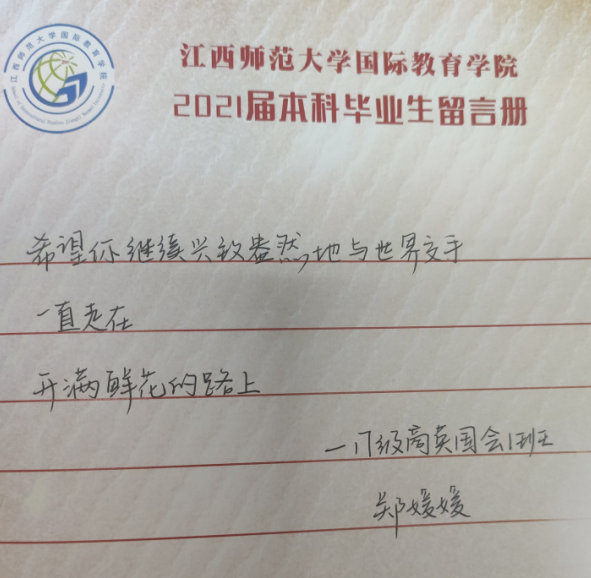 江西师范大学国际教育学院
江西师范大学国际教育学院
2021届本科毕业生留言册
希望你继续兴致盎然地与世界交手
一直走在
开满鲜花的路上
—17级商英国会1班
郑媛媛